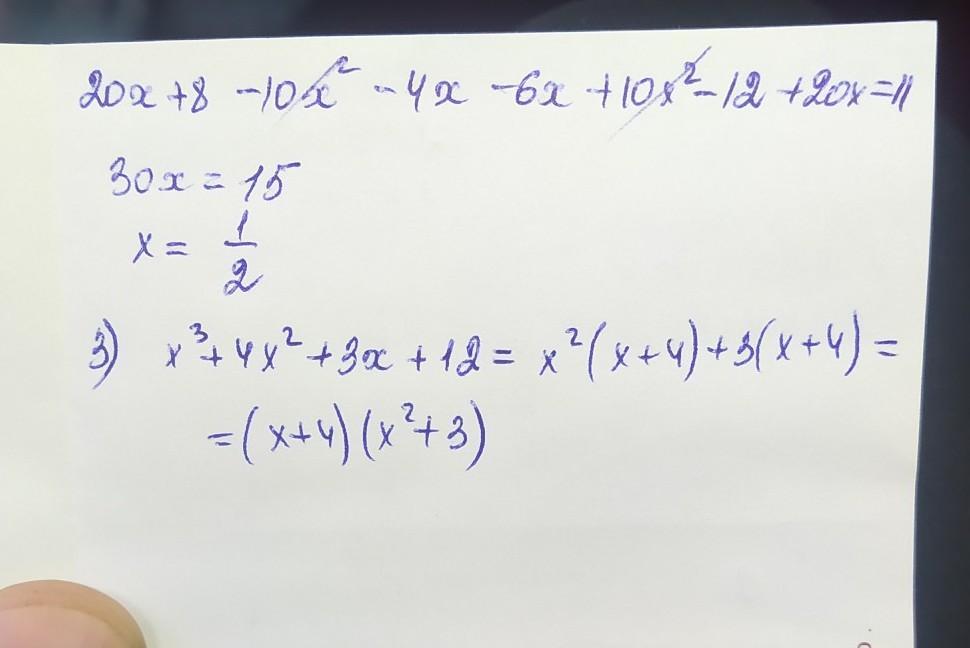 20x + 8 - 10x² - 4x - 6x + 10x² - 12 + 20x = 11
30x = 15
x = 1/2
3) x³ + 4x² + 3x + 12 = x²(x+4) + 3(x+4) =
= (x+4)(x²+3)